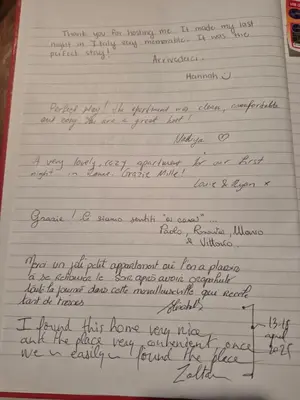 Thank you for hosting me. It made my last
night in Italy very memorable. It was the
perfect stay!
Arrivederci
Hannah
Perfect place! The apartment was clean, comfortable
and cozy. You are a great host!
Nadiya ♡
A very lovely, cozy apartment for our first
night in Rome. Grazie Mille!
& Ryan x
Grazie! Ci siamo sentiti "a casa"...
Paolo, Rosaria, Marco
& Vittorio.
un joli petit appartement où l'on a plaisir
à se retrouver le soir après avoir crapahuté
toute la journée dans cette merveilleuse ville qui recèle
tant de trésors
I found this home very nice
and the place very convenient once
we easily found the place
Zoltan
13-18
2025